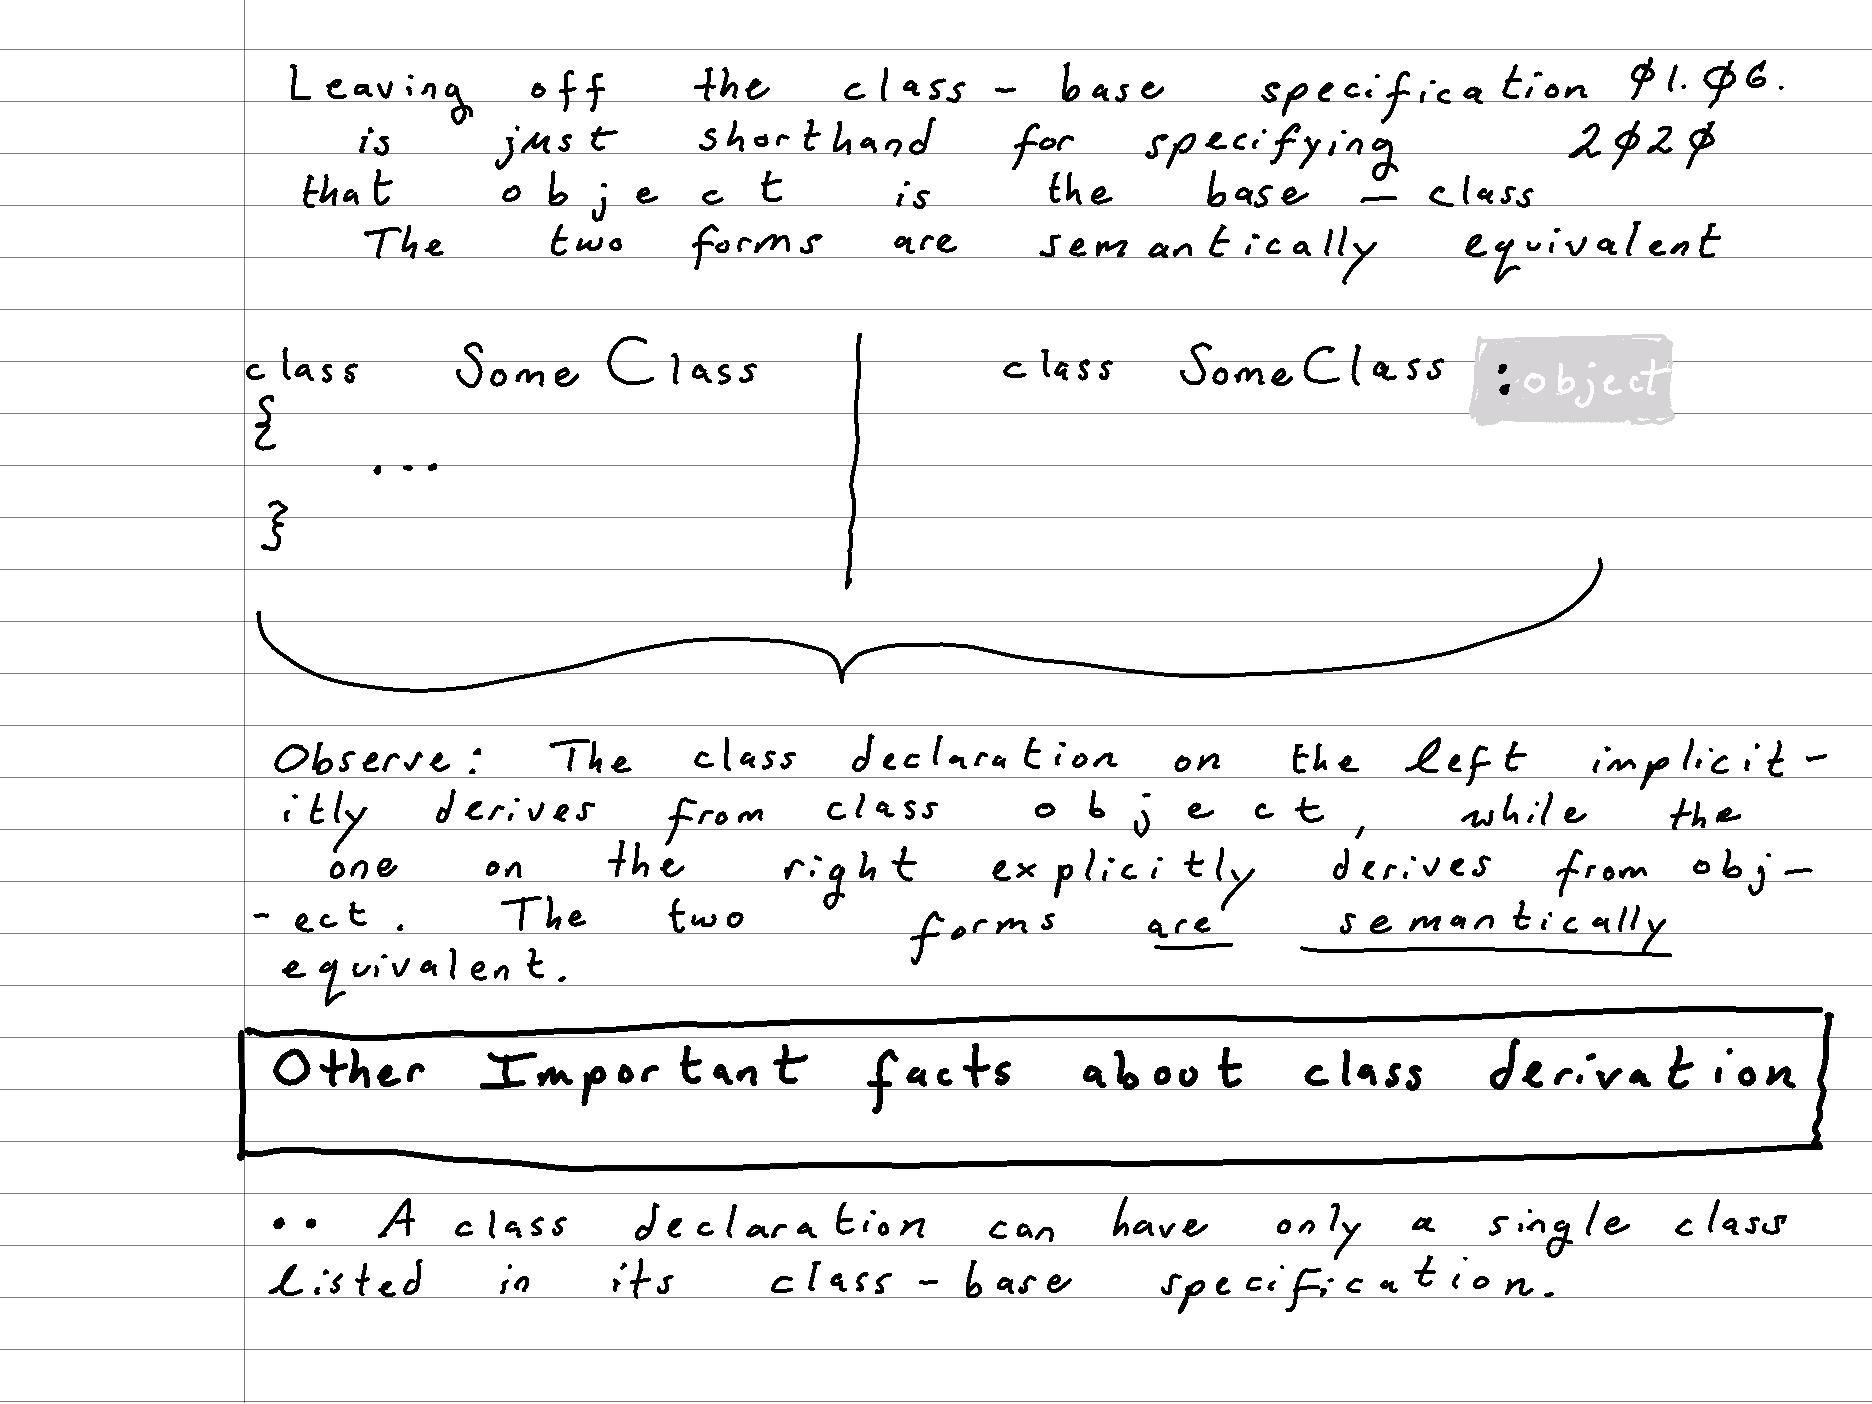 Leaving off the class - base specification Ø1.Ø6.
is just shorthand for specifying 2Ø2Ø
that object is the base - class
The two forms are semantically equivalent
class SomeClass
class SomeClass :object
{
...
}
Observe: The class declaration on the left implicit-
itly derives from class object, while the
one on the right explicitly derives from obj-
-ect. The two forms are semantically
equivalent.
Other Important facts about class derivation
•• A class declaration can have only a single class
listed in its class-base specification.